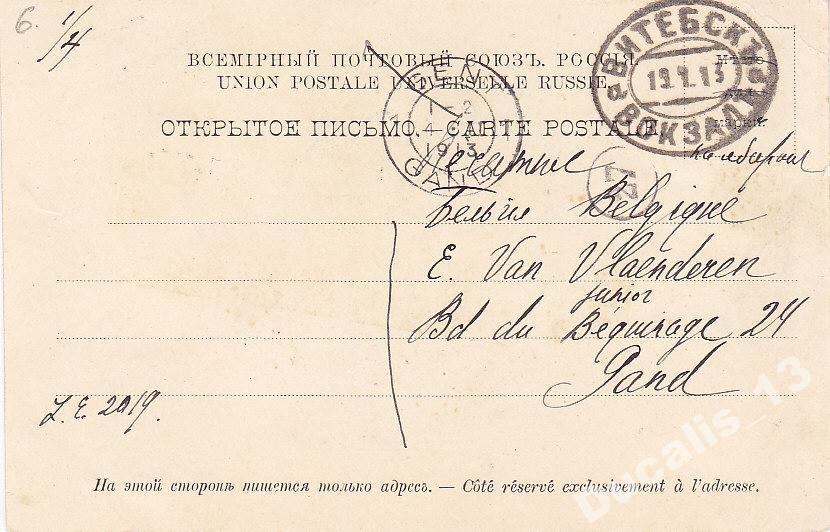 6.
1/4
ВСЕМІРНЫЙ ПОЧТОВЫЙ СОЮЗЪ. РОССІЯ.
UNION POSTALE UNIVERSELLE RUSSIE.
Мѣсто
для
марки.
ОТКРЫТОЕ ПИСЬМО. — CARTE POSTALE.
ВИТЕБСКЪ
19.1.13
ВОКЗАЛЪ
GENT
1-2
4
1913
GAND
Бельгія Belgique
E. Van Vlaenderen
junior
Bd du Béguinage 24
Gand
L.E. 2019.
На этой сторонѣ пишется только адресъ. — Côté réservé exclusivement à l'adresse.
Ducalis_13